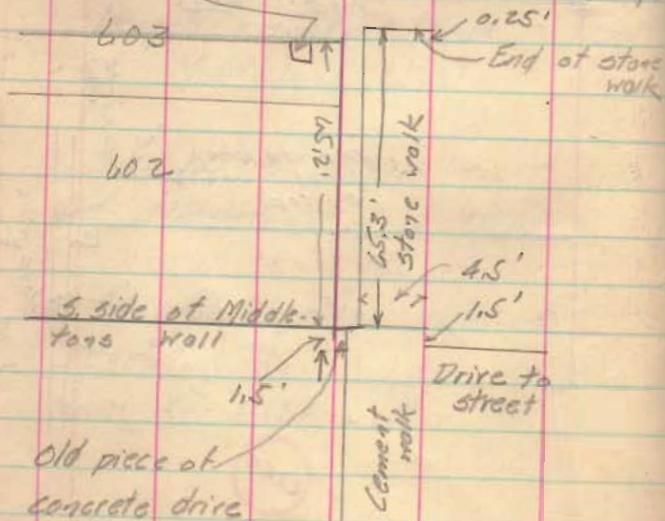 603
0.25'
End of stone
walk
602
65.3'
stone walk
4.5'
1.5'
S. side of Middle-
tons wall
1.5'
Drive to
street
Cement
walk
Old piece of
concrete drive